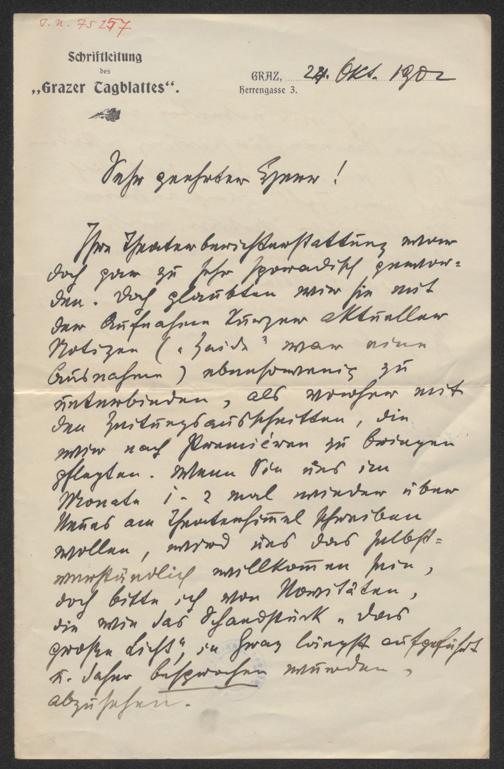 J. N. 75257
Schriftleitung
des
„Grazer Tagblattes“.
GRAZ, 24. Okt. 1902
Herrengasse 3.
Sehr geehrter Herr!
Ihre Theaterberichterstattung war
doch gar zu sehr sporadisch gewor-
den. Doch glaubten wir sie mit
der Aufnahme kurzer aktueller
Notizen („Zaide“ war eine
Ausnahme) ebensowenig zu
unterbinden, als vorher mit
den Zeitungsausschnitten, die
wir nach Premièren zu bringen
pflegten. Wenn Sie uns im
Monate 1-2 mal wieder über
Neues am Theaterhimmel schreiben
wollen, wird uns das selbst-
verständlich willkommen sein,
doch bitte ich von Novitäten,
die wie das Schandstück „das
große Licht“, in Graz längst aufgeführt
u. daher besprochen wurden,
abzusehen.